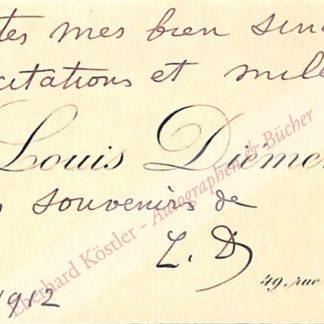 tes mes bien sinc
citations et mille
Louis Diémer
souvenirs de
L. D.
49, rue
1912
Eberhard Köstler - Autographen & Bücher